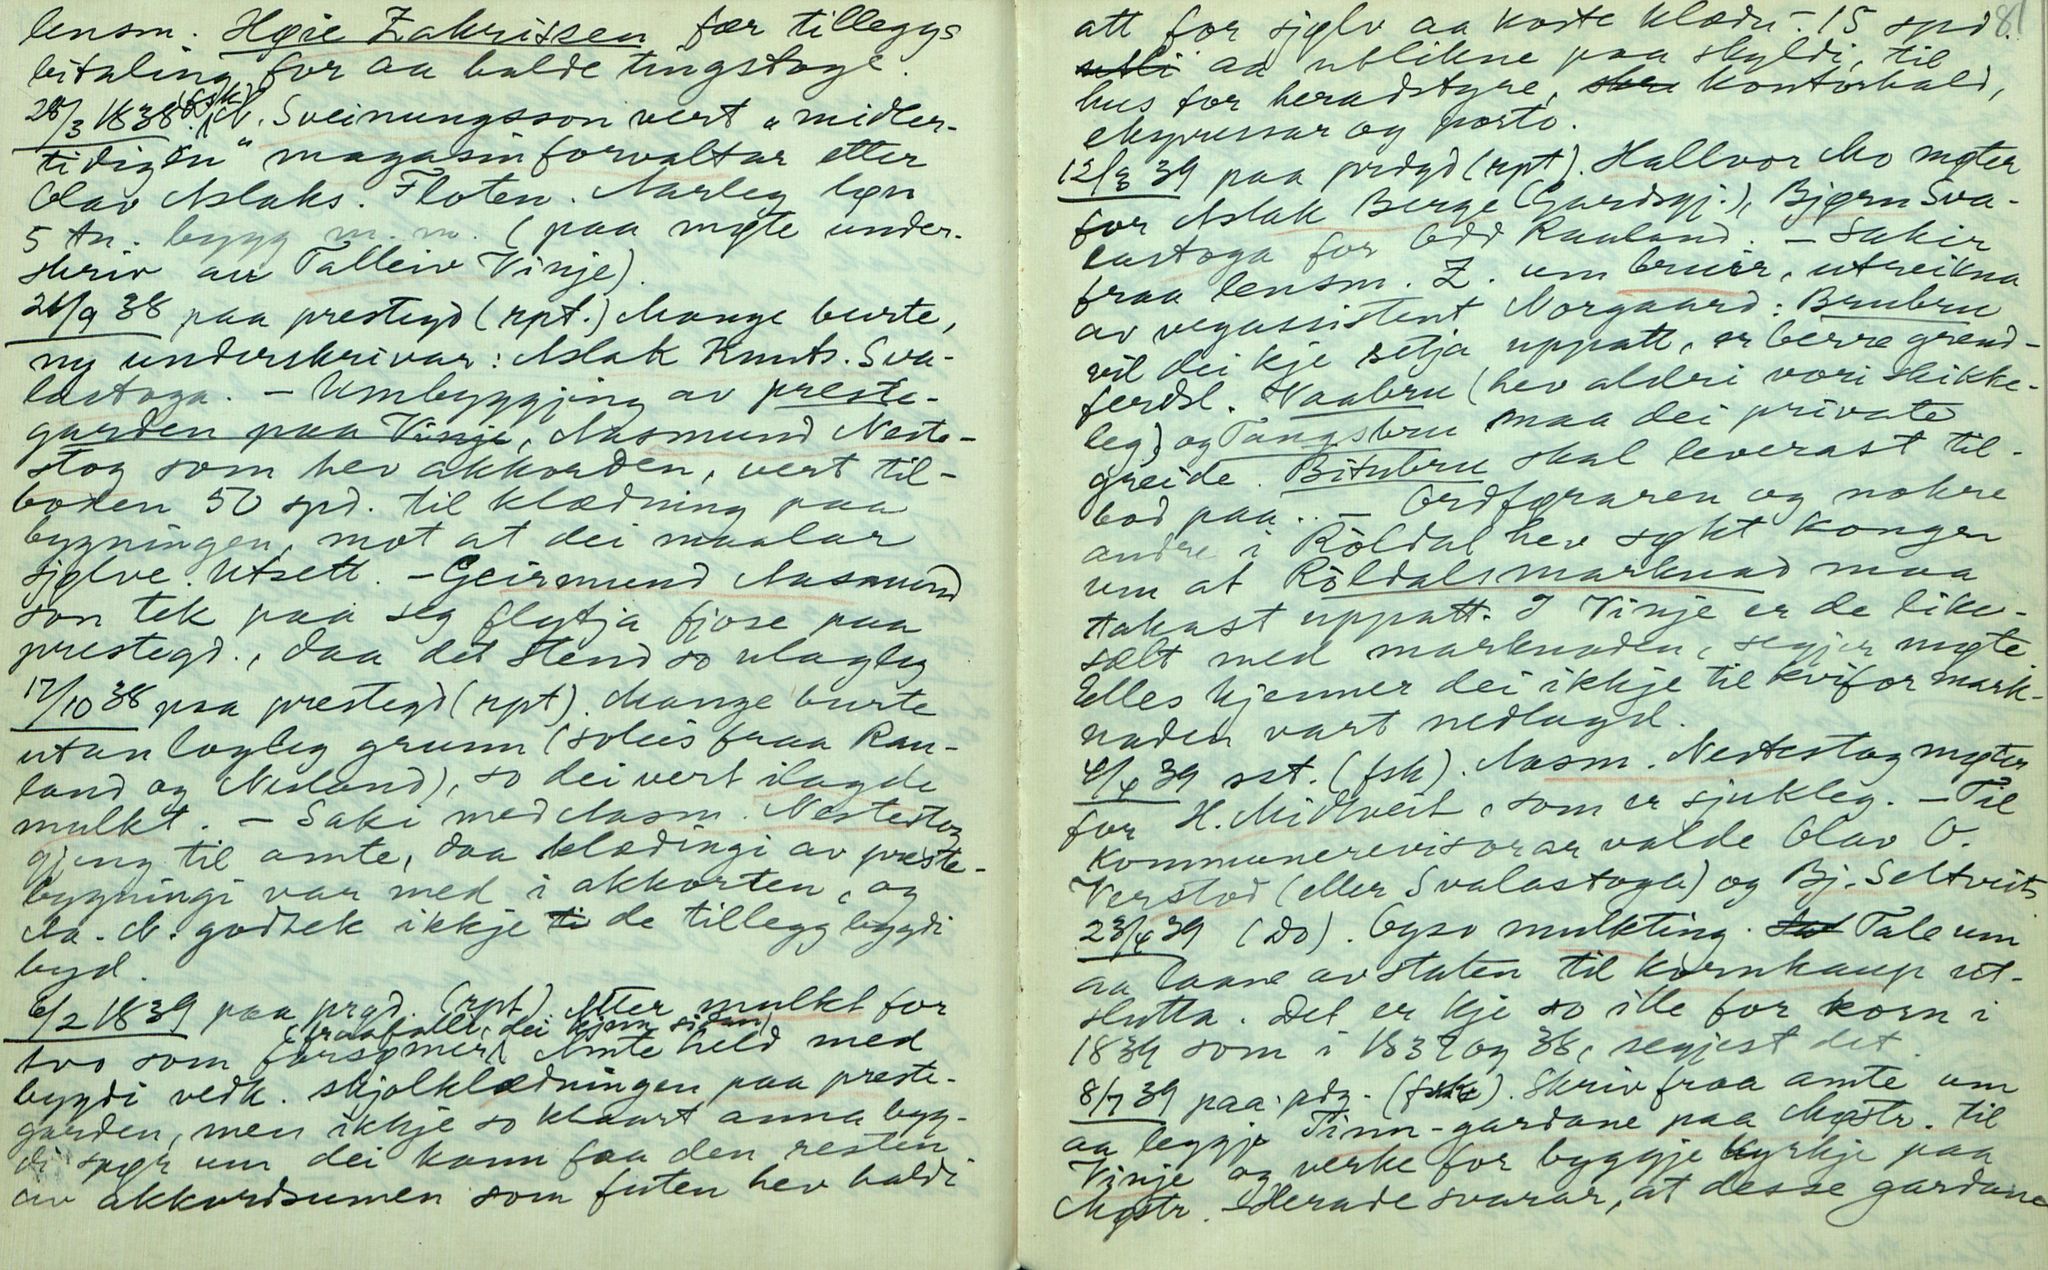 lensm. Høie Zakrissen fær tilleggs
bitaling for aa halde tingstoge.
28/3 1838 (fsk) N. Sveinungsson vert "midler-
tidigen" magasinforvaltar etter
Olav Aslaks. Floten. Aarleg løn
5 tn. bygg m.m. (paa møte under-
skriv au Talleiv Vinje)
21/9 38 paa prestegd (rpt.) Mange burte,
ny underskrivar: Aslak Knuts. Sva-
lastoga. - Umbyggjing av preste-
garden paa Vinje, Aasmund Neste-
stog som hev akkorden, vert til-
boden 50 spd. til klædning paa
bygningen, mot at dei maalar
sjølve. Utsett. - Geirmund Aasmund
son tek paa seg flytja fjose paa
prestegd., daa det stend so ulagleg
17/10 38 paa prestegd (rpt). Mange burte
utan logleg grunn (soleis fraa Rau-
land og Nesland), so dei vert ilagde
mulkt. - Saki med Aasm. Nestestog
gjeng til amte, daa klædingi av preste-
bygningi var med i akkorten, og
Aa. N. godtek ikkje ti de tillegg bygdi
byd.
6/2 1839 paa prgd. (rpt) Etter mulkt for
(fraafalle, dei kjem sidan)
tvo som forsømer. Amte held med
bygdi vedk. skjolklædningen paa preste-
garden, men ikkje so klaart anna byg-
di spør um dei kann faa den resten
av akkordsumen som futen hev haldi
81
att for sjølv aa koste klædn. - 15 spd.
utli aa utlikne paa skyldi, til
hus for heradstyre, skr kontorhald,
ekspressar og porto.
12/3 39 paa prdgd (rpt). Hallvor Mo møter
for Aslak Berge (Gardsgj.), Bjørn Sva-
lastoga for Odd Rauland. - Sakir
fraa lensm. Z. um bruir, utreikna
av vegassistent Norgaard: Brubru
vil dei kje setja uppatt, er berre grend-
ferdsl. Vaabru (hev aldri vori skikke-
leg) og Tangsbru maa dei private
greide. Bitubru skal leverast til-
bod paa. - Ordføraren og nokre
andre i Röldal hev søkt kongen
um at Röldalsmarknad maa
takast uppatt. I Vinje er de like-
sælt med marknaden, segjer møte.
Elles kjenner dei ikkje til kvifor mark-
naden vart nedlagd.
4/4 39 sst. (fsk). Aasm. Nestestog møter
for H. Midtveit, som er sjukleg. - Til
kommunerevisorar valde Olav O.
Verstod (eller Svalastoga) og Bj. Seltveit.
23/4 39 (Do). Ogso mulkting. Tale um
aa laane av staten til kornkaup ut-
slutta. Det er kje so ille for korn i
1839 som i 1837 og 38, segjest det.
8/7 39 paa pdg. (fsk). Skriv fraa amte um
aa leggje Tinn-gardane paa Møstr. til
Vinje og verke for byggje kyrkje paa
Møstr. - Herade svarar, at desse gardane